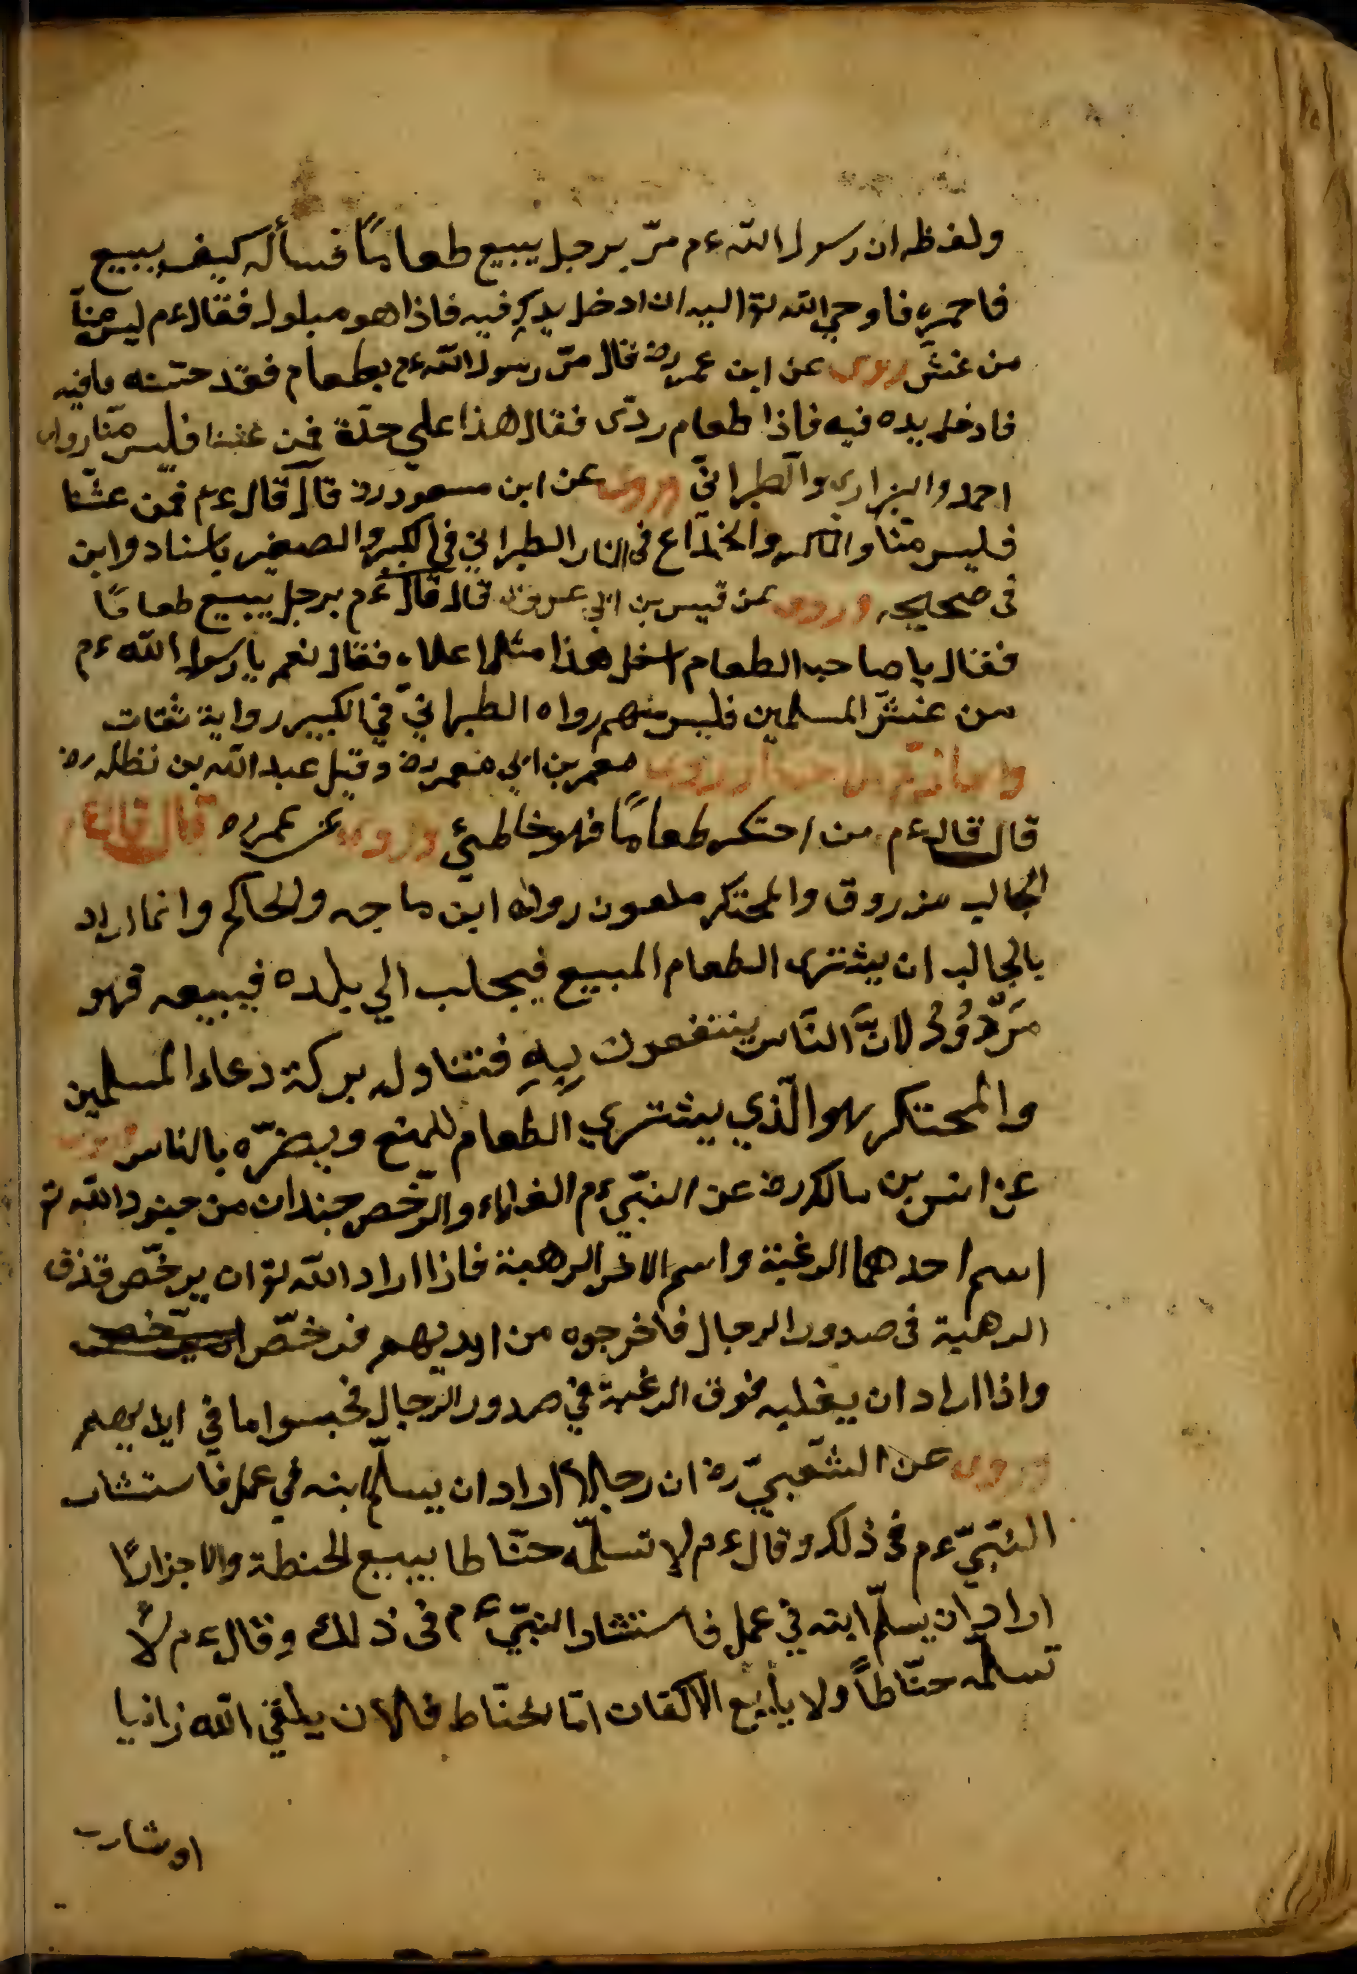 ولفظه ان رسول الله ءم مرّ برجل يبيع طعامًا فسأله كيف يبيع
فاخبره فاوحي الله تو اليه ان ادخل يدك فيه فاذا هو مبلول فقال ءم ليس منّا
من غشّ روى عن ابن عمر رض قال مرّ رسول الله ءم بطعام فقد حسنه مافيه
فادخل يده فيه فاذا طعام ردّى فقال هذا علي حدّة فمن غشنا فليس منّا رواه
احمد والبزار والطبرانيّ وروى عن ابن مسعود رض قال قال ءم فمن غشّنا
فليس منّا والمكر والخداع في النار الطبراني في الكبير والصغير باسناد وابن
في صحيحه وروى عن قيس بن ابي قال قال ءم برجل يبيع طعامًا
فقال يا صاحب الطعام اسفل هذا مثل اعلاه فقال نعم يا رسول الله ءم
من غشّ المسلمين فليس منهم رواه الطبرانيّ في الكبير رواية ثقات
روى معمر بن ابي معمر رض وقيل عبد الله بن نظله رض
قال قال ءم من احتكر طعامًا فهو خاطئ وروى عن عمر رض قال قال ءم
الجالب مرزوق والمحتكر ملعون رواه ابن ماجه والحاكم وانما اراد
بالجالب ان يشترى الطعام المبيع فيجلب الي بلده فيبيعه فهو
مَردُودُ لانَّ النَاس ينتفعون بِهِ فتناوله بركة دعاء المسلمين
والمحتكر هو الّذي يشتري الطعام للمنع ويضرّه بالناس وروى
عن انس بن مالك رض عن النبّي ءم الغلاء والرّخص جندان من جنود الله تو
اسم احدهما الرغبة واسم الاخر الرهبة فاذا اراد الله تو ان يرخّص قذف
الرهبة في صدور الرجال فاخرجوه من ايديهم فرخّص
واذا اراد ان يغليه فوق الرغبة في صدور الرّجال فحبسوا ما في ايديهم
وروى عن الشّعبيّ رض ان رجلا اراد ان يسلّم ابنه في عمل فاستشار
النبّيّ ءم في ذلك وقال ءم لا تسلّمه حنّاطا يبيع الحنطة ولا جزارًا
اراد ان يسلّم ابنه في عمل فاستشار النبّي ءم في ذلك وقال ءم لا
تسلّمه حنّاطاً ولا يابيع الاكفان امّا الحنّاط فلان يلقي الله زانيا
او شارب